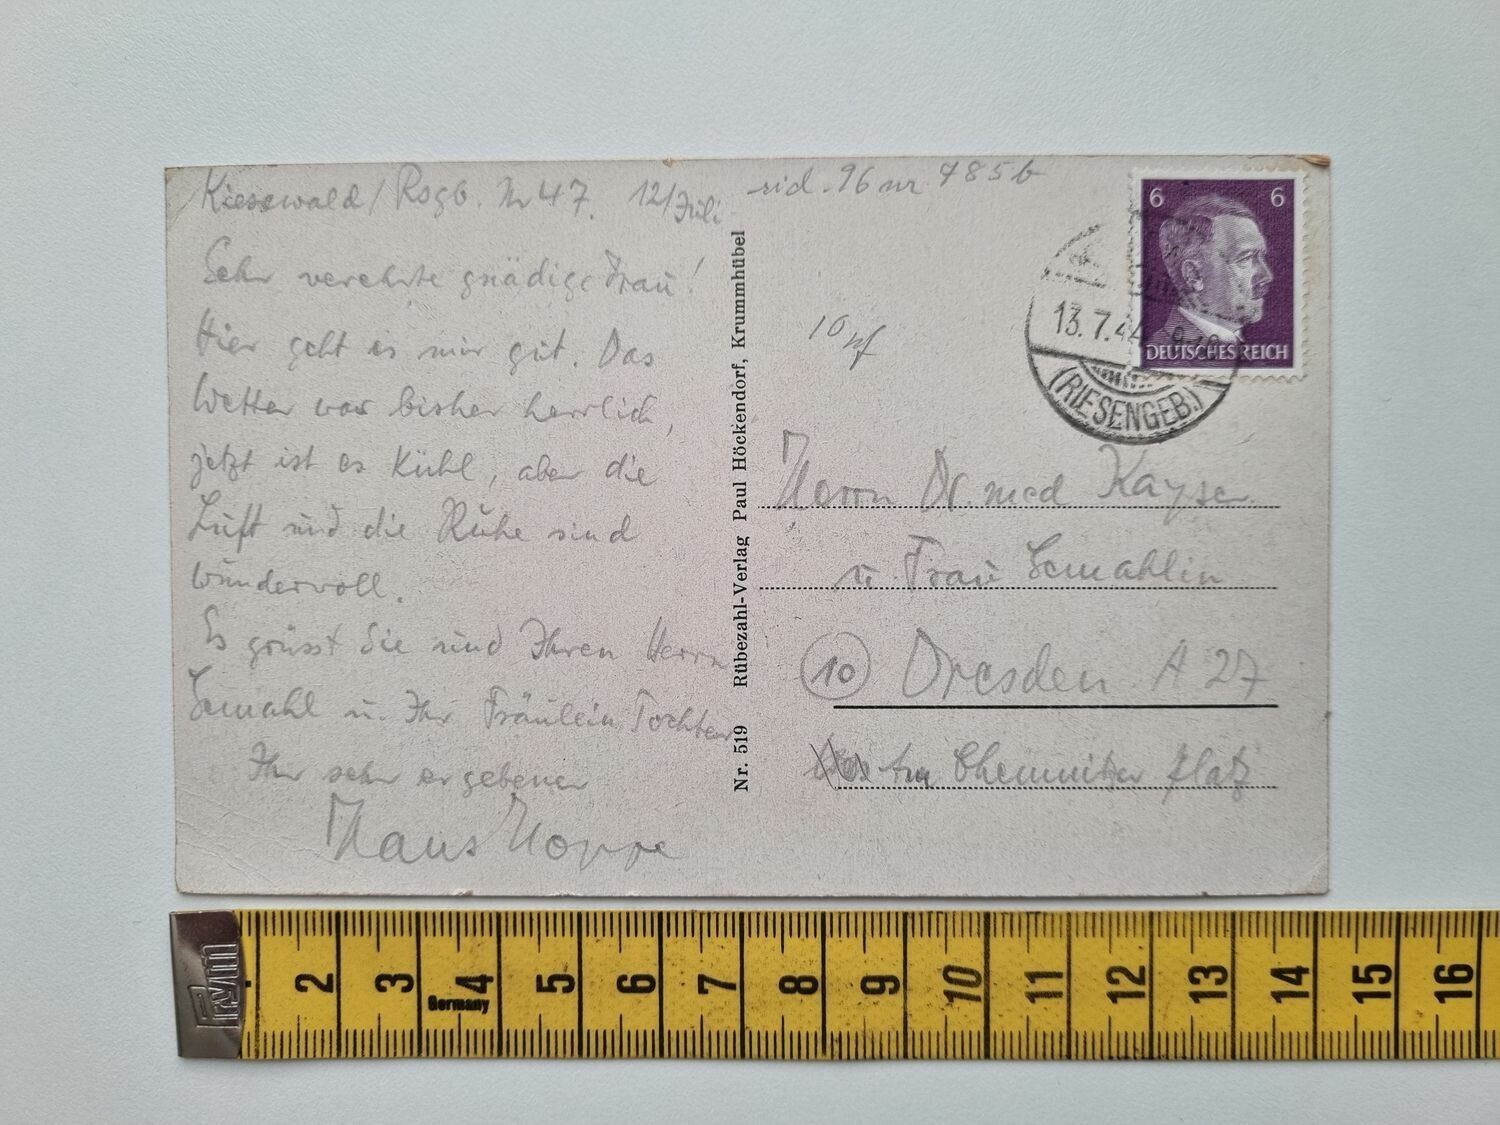 Kiesewald / Rsgb. Nr 47. 12/Juli
Sehr verehrte gnädige Frau!
Hier geht es mir gut. Das
Wetter war bisher herrlich,
jetzt ist es kühl, aber die
Luft und die Ruhe sind
wundervoll.
Es grüsst Sie und Ihren Herrn
Gemahl u. Ihr Fräulein Tochter
Ihr sehr ergebener
Hans Hoppe
Nr. 519 Rübezahl-Verlag Paul Höckendorf, Krummhübel
rid. 96 nr 785b
10 pf
6 6
DEUTSCHES REICH
13.7.44
(RIESENGEB.)
Herrn Dr. med Kayser
u. Frau Gemahlin
10 Dresden A 27
Am Chemnitzer Platz
prym
2 3 4 5 6 7 8 9 10 11 12 13 14 15 16
Germany